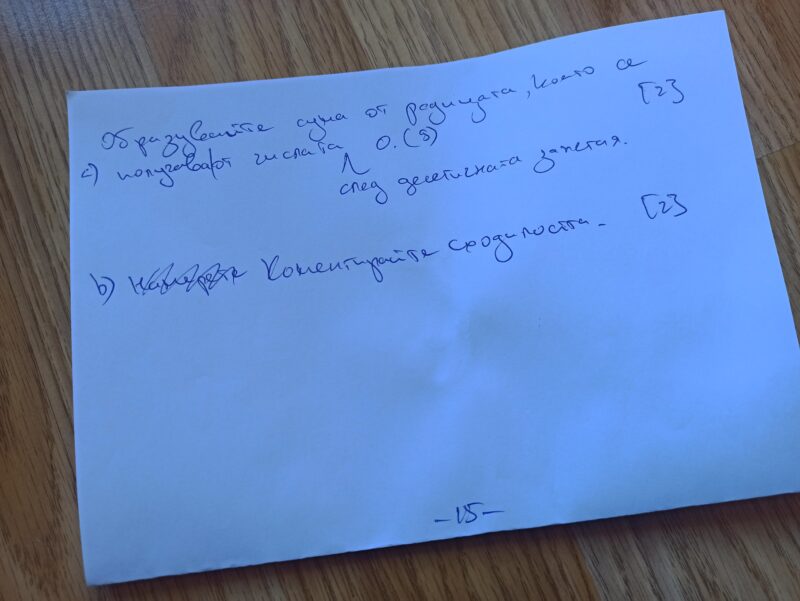 Образувайте сума от редицата, която се
a) получават числата 0.(5) [2]
след десетичната запетая.
b) Намерете Коментирайте сходимостта. [2]
-15-